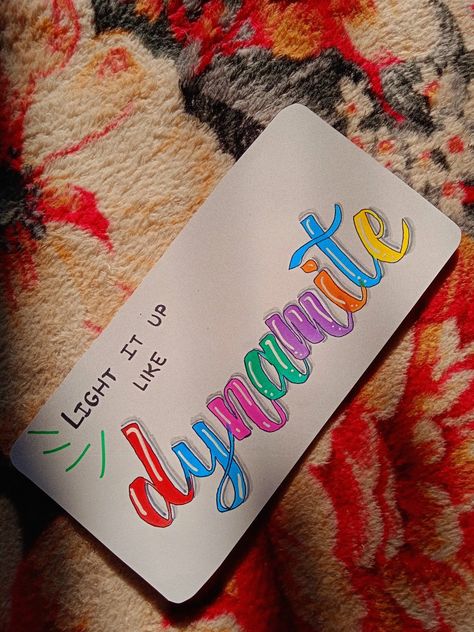 LIGHT IT UP
LIKE
dynamite